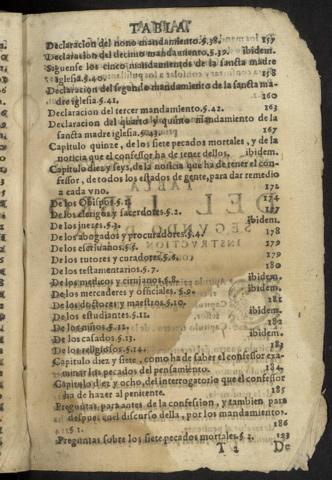 TABLA.
Declaracion del nono mandamiento.5.38. 157
Declaracion del decimo mandamiento.5.39. ibidem.
Siguense los cinco mandamientos de la sancta madre
Iglesia.5.40. 158
Declaracion del segundo mandamiento de la sancta ma-
dre iglesia.5.41. 160
Declaracion del tercer mandamiento.5.42. 163
Declaracion del quarto y quinto mandamiento de la
sancta madre iglesia.5.43. 167
Capitulo quinze, de los siete pecados mortales, y de la
noticia que el confessor ha de tener dellos. ibidem.
Capitulo diez y seys, de la noticia que ha de tener el con-
fessor, de todos los estados de gente, para dar remedio
a cada vno. 172
De los Obispos.5.1. 174
De los clerigos y sacerdotes.5.2. ibidem.
De los juezes.5.3. 177
De los abogados y procuradores.5.4. 178
De los escriuanos.5.5. 179
De los tutores y curadores.5.6. 179
De los testamentarios.5.7. 180
De los medicos y cirujanos.5.8. ibidem.
De los mercaderes y officiales.5.9. ibidem.
De los doctores y maestros.5.10. 181
De los estudiantes.5.11. ibidem.
De los niños.5.12. 182
De los casados.5.13. ibidem.
De los religiosos.5.14. 183
Capitulo diez y siete, como ha de saber el confessor exa-
minar los pecados del pensamiento. 184
Capitulo diez y ocho, del interrogatorio que el confessor
ha de hazer al penitente. 185
Preguntas para antes de la confession, y tambien para
despues en el discurso della, por los mandamientos.
5.1. 186
Preguntas sobre los siete pecados mortales.5.2. 193
T 2 De